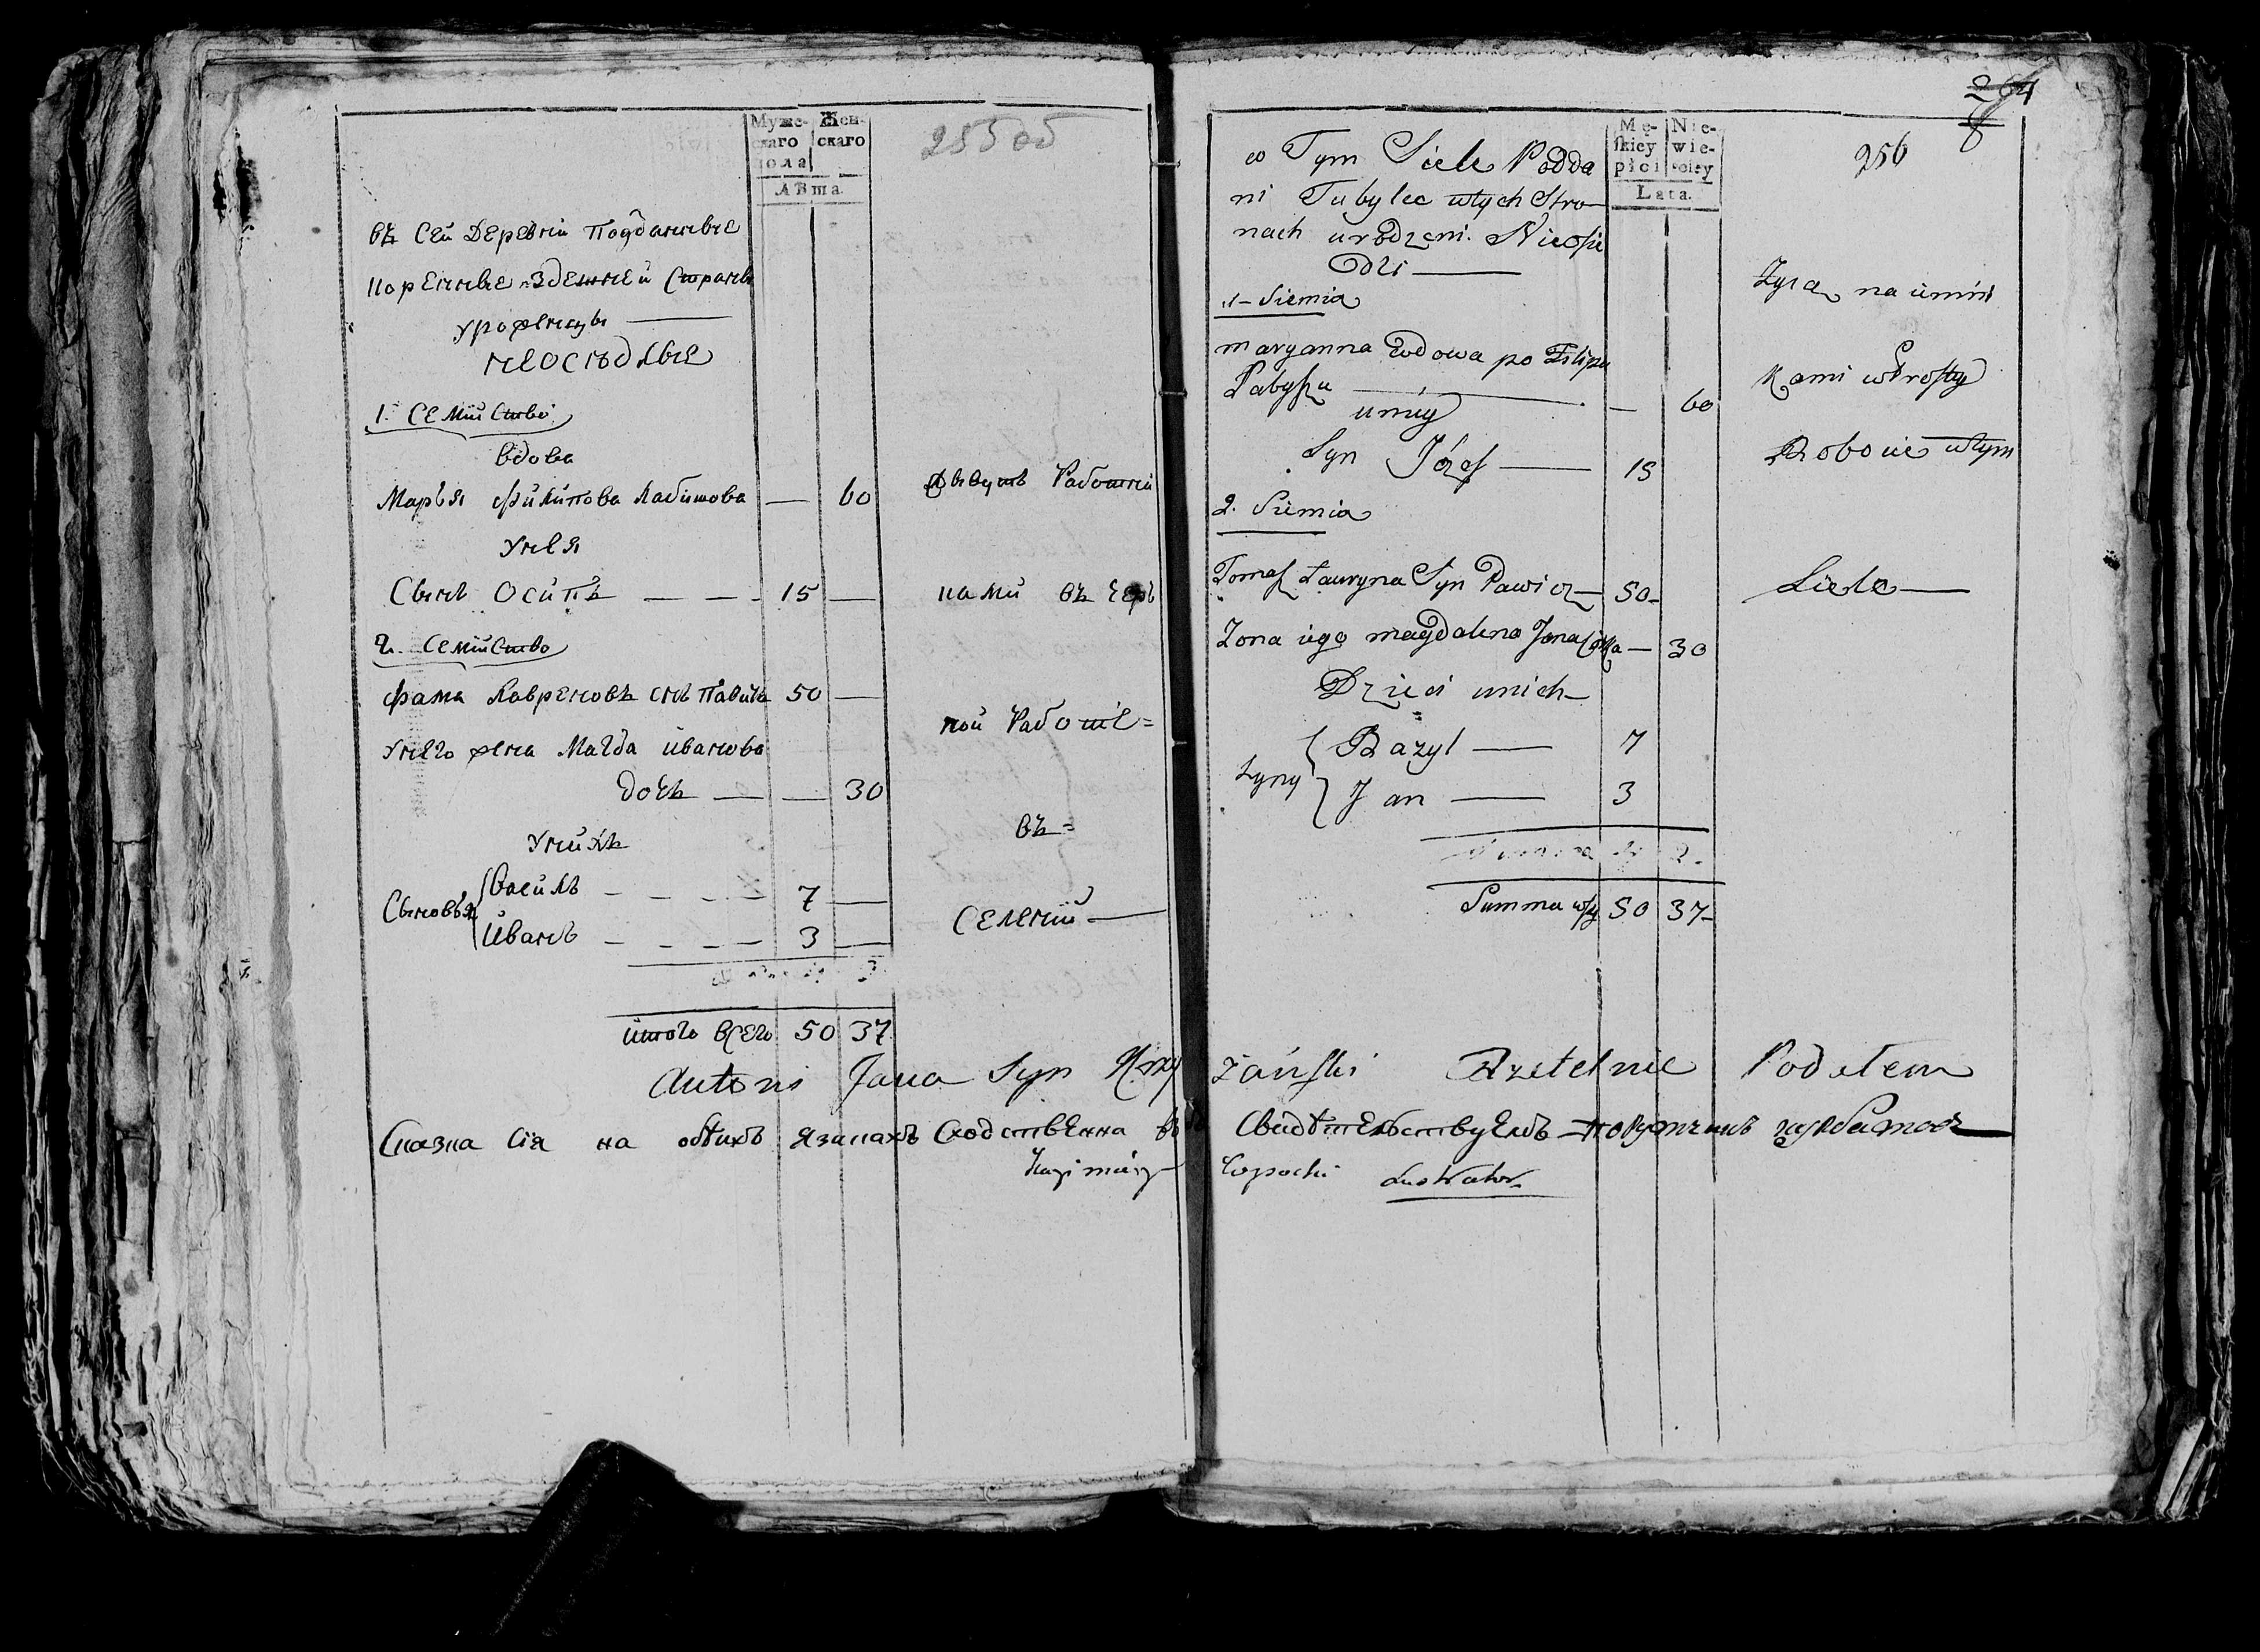 Муже-
скаго
пола
Жен-
скаго
Лѣта.
255 об
въ сей деревни Подданные
коренные здешней Стораны
урожeнцы
неоселые
1. Семийство
вдова
Марья Филипова Лабишова — 60
Унея
Сынъ Осипъ — 15 —
2. Семийство
Фама Лавреновъ снъ Павичъ 50 —
Унего жена Магда Иванова
дочь — — 30
Унихъ
Сыновья
Василь — 7 —
Иванъ — 3 —
Итого всего 50 37
Живутъ Работни
ками въ Чер
ной Работе=
въ=
Селении —
264
8
256
Mę-
skiey
płci
Nie-
wie-
sciey
Lata.
w Tym Siele Podda
ni Tubylce wtych Stro
nach urodzeni. Nieosie
dli —
1 - Siemia
maryanna wdowa po Filipu
Łabyszu — — 60
umiey
Syn Józef — 15
2. Siemia
Tomasz Ławryna Syn Pawicz — 50 -
Zona iego magdalena Jana Córka — 30
Dzieci unich —
Syny
Bazyl — 7
Jan — 3
Summa wszy 50 37 -
Zyią na
kami wProstey
Robocie wtym
Siele —
Antoni Jana Syn żański Rzetelnie Podałem
Сказка сія на обѣихъ языкахъ Сходственна въ Свидѣтельствуемъ
Kazimierz Lustrator